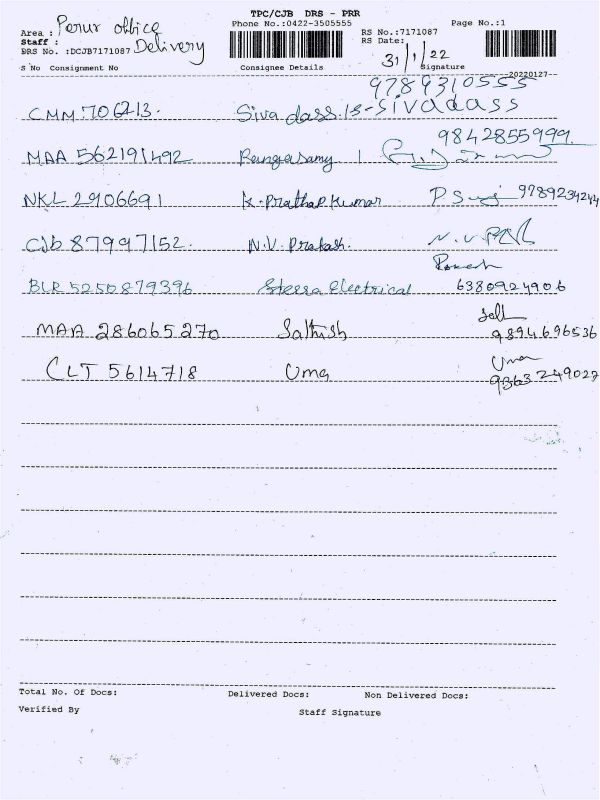 TPC/CJB DRS - PRR
Area : Perur office
Phone No.:0422-3505555
Page No.:1
Staff : Delivery
RS No.:7171087
DRS No. :DCJB7171087
RS Date: 31/1/22
S No Consignment No Consignee Details Signature
20220127
9789310555
CMM 706213. Siva dass. B - Sivadass
9842855999
MAA 562191492 Rengasamy
NKL 2906691 K. Prathap Kumar 9789234244
CJb 87997152. N.V. Prakash.
Ramesh
BLR 5250879396 Steera Electrical 6380924906
MAA 286065270 Sathish
9894696536
Uma
CLT 5614718 Uma 9363249027
Total No. Of Docs: Delivered Docs: Non Delivered Docs:
Verified By Staff Signature